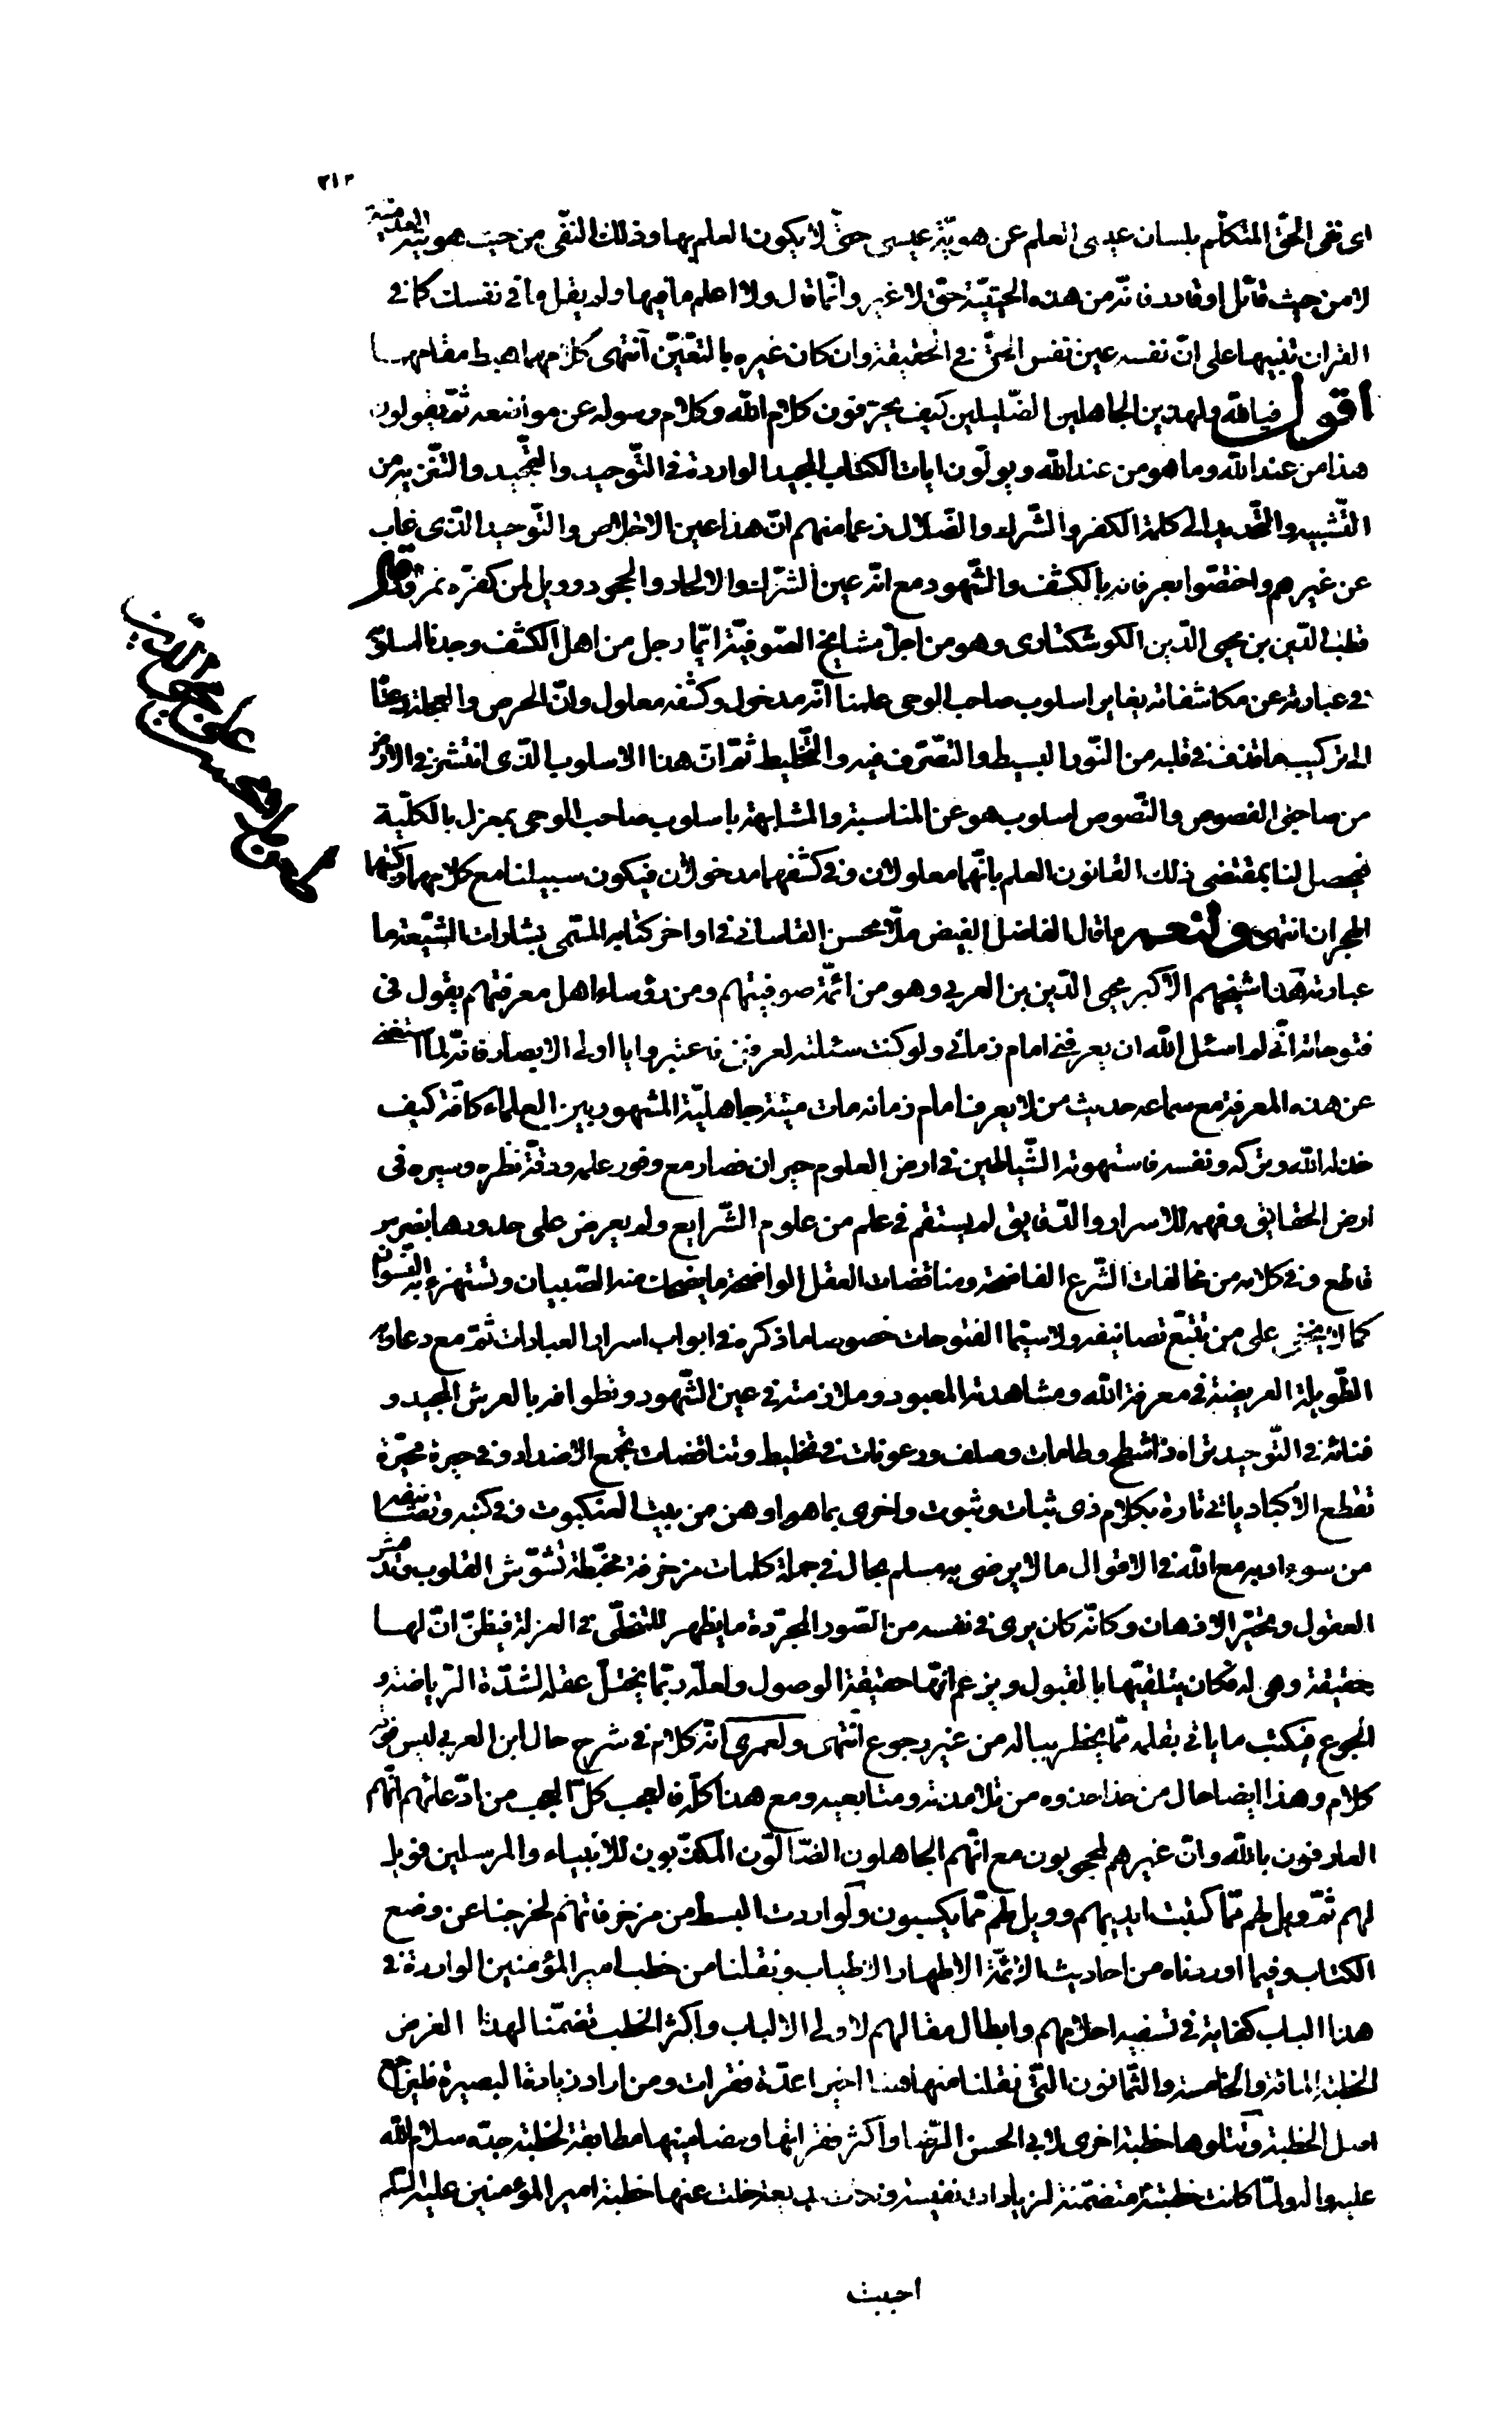 ٢١٣
اى نفى الحقّ المتكلّم بلسان عيسى العلم عن هويّة عيسى حتّى لا يكون العلم بها وذلك النّفى من حيث هويّته العدميّة
لا من حيث قائل او قادر فانّه من هذه الحيثيّة حقّ لا غير وانّما قال ولا اعلم ما فيها ولم يقل ما فى نفسك كما فى
القران تنبيها على انّ نفسه عين نفس الحقّ فى الحقيقة وان كان غيره بالتعيّن انتهى كلامهما هبط مقامهما
اقول فيالله ولهذين الجاهلين الضّليلين كيف يحرّفون كلام الله وكلام رسوله عن مواضعه ثمّ يقولون
هذا من عند الله وما هو من عند الله ويولّون ايات الكتاب المجيد الواردة فى التّوحيد والتّمجيد والتّنزيه من
التّشبيه والتّحديد الى كلمة الكفر والشّرك والضّلال زعما منهم انّ هذا عين الاخلاص والتّوحيد الّذى غاب
عن غيرهم واختصّوا بعرفانه بالكشف والشّهود مع انّه عين الشّرك والالحاد والجحود وويل لمن كفّره نمرود قال
قطب الدّين بن محيى الدّين الكوشكنارى وهو من اجلّ مشايخ الصّوفيّة ايّما رجل من اهل الكشف وجدنا اسلوبه
فى عبارته عن مكاشفاته يغاير اسلوب صاحب الوحى علمنا انّه مدخول وكشفه معلول وانّ الحرص والعجلة دعتا
الى تركيب ما قذف فى قلبه من النّور البسيط والتّصرّف فيه والتّخليط ثمّ انّ هذا الاسلوب الّذى انتشر فى الارض
من صاحبى الفصوص والنّصوص اسلوب هو عن المناسبة والمشابهة باسلوب صاحب الوحى بمعزل بالكلّية
فيحصل لنا بمقتضى ذلك القانون العلم بانّهما معلولان وفى كشفهما مدخولان فيكون سبيلنا مع كلامهما وكتبهما
الهجران انتهى ولنعم ما قال الفاضل الفيض ملّا محسن القاسانى فى اواخر كتابه المسمّى بشارات الشّيعة ما
عبارته هذا شيخهم الاكبر محيى الدّين بن العربى وهو من ائمّة صوفيتهم ومن رؤساء اهل معرفتهم يقول فى
فتوحاته انّى لم اسئل الله ان يعرفنى امام زمانى ولو كنت سئلته لعرفنى فاعتبروا يا اولى الابصار فانّه لمّا استغنى
عن هذه المعرفة مع سماعه حديث من لا يعرف امام زمانه مات ميتة جاهليّة المشهور بين العلماء كافّة كيف
خذله الله وتركه ونفسه فاستهوته الشّياطين فى ارض العلوم حيران فصار مع وفور علمه ودقّة نظره وسيره فى
ارض الحقايق وفهمه للاسرار والدّقايق لم يستقم فى علم من علوم الشّرايع ولم يعرض على حدودها بضرس
قاطع وفى كلامه من مخالفات الشّرع الفاضحة ومناقضات العقل الواضحة ما يضحك منه الصّبيان وتستهزء به النّسوان
كما لا يخفى على من تتبّع تصانيفه ولا سيّما الفتوحات خصوصا ما ذكره فى ابواب اسرار العبادات ثمّ مع دعاويه
الطّويلة العريضة فى معرفة الله ومشاهدته المعبود وملازمته فى عين الشّهود وتطوافه بالعرش المجيد و
فنائه فى التّوحيد تراه ذا شطح وطامات وصلف ورعونات فى تخليط وتناقضات تجمع الاضداد وفى حيرة محيّرة
تقطع الاكباد ياتى تارة بكلام ذى ثبات وثبوت واخرى بما هو اوهن من بيت العنكبوت وفى كتبه وتصانيفه
من سوء ادبه مع الله فى الاقوال ما لا يرضى به مسلم بحال فى جملة كلمات مزخرفة مخبّطة تشوّش القلوب وتدهش
العقول وتحيّر الاذهان وكانّه كان يرى فى نفسه من الصّور المجرّدة ما يظهر للتخلّى فى العزلة فيظنّ انّ لها
حقيقة وهى له فكان يتلقيّها بالقبول ويزعم انّها حقيقة الوصول ولعلّه ربّما يختلّ عقله لشدّة الرّياضة و
الجوع فيكتب ما ياتى بقلمه ممّا يخطر بباله من غير رجوع انتهى ولعمرى انّه كلام فى شرح حال ابن العربى ليس فوقه
كلام وهذا ايضا حال من حذا حذوه من تلامذته ومتابعيه ومع هذا كلّه فالعجب كلّ العجب من ادّعائهم انّهم
العارفون بالله وانّ غيرهم لمحجوبون مع انّهم الجاهلون الضّالّون المكذّبون للانبياء والمرسلين فويل
لهم ثمّ ويل لهم ممّا كتبت ايديهم وويل لهم ممّا يكسبون ولو اردت البسط من مزخرفاتهم لخرجنا عن وضع
الكتاب وفيما اوردناه من احاديث الائمّة الاطهار الاطياب ونقلنا من خطب امير المؤمنين الواردة فى
هذا الباب كفاية فى تسفيه احلامهم وابطال مقالهم لاولى الالباب واكثر الخطب تضمّنا لهذا الغرض
الخطبة المائة والخامسة والثّمانون الّتى نقلنا منها هنا اخيرا عدّة فقرات ومن اراد زيادة البصيرة فليراجع
اصل الخطبة وتتلوها خطبة اخرى لابى الحسن الرّضا واكثر فقراتها ومضامينها مطابقة لخطبة جدّه سلام الله
عليه واله ولمّا كانت خطبته متضمّنة لزيادات نفيسة خلت عنها خطبة امير المؤمنين عليه السّلم
احببت